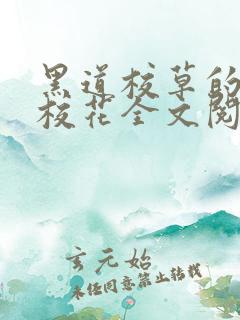 黑道校草的
校花全文阅
玄元始
未经同意禁止转载